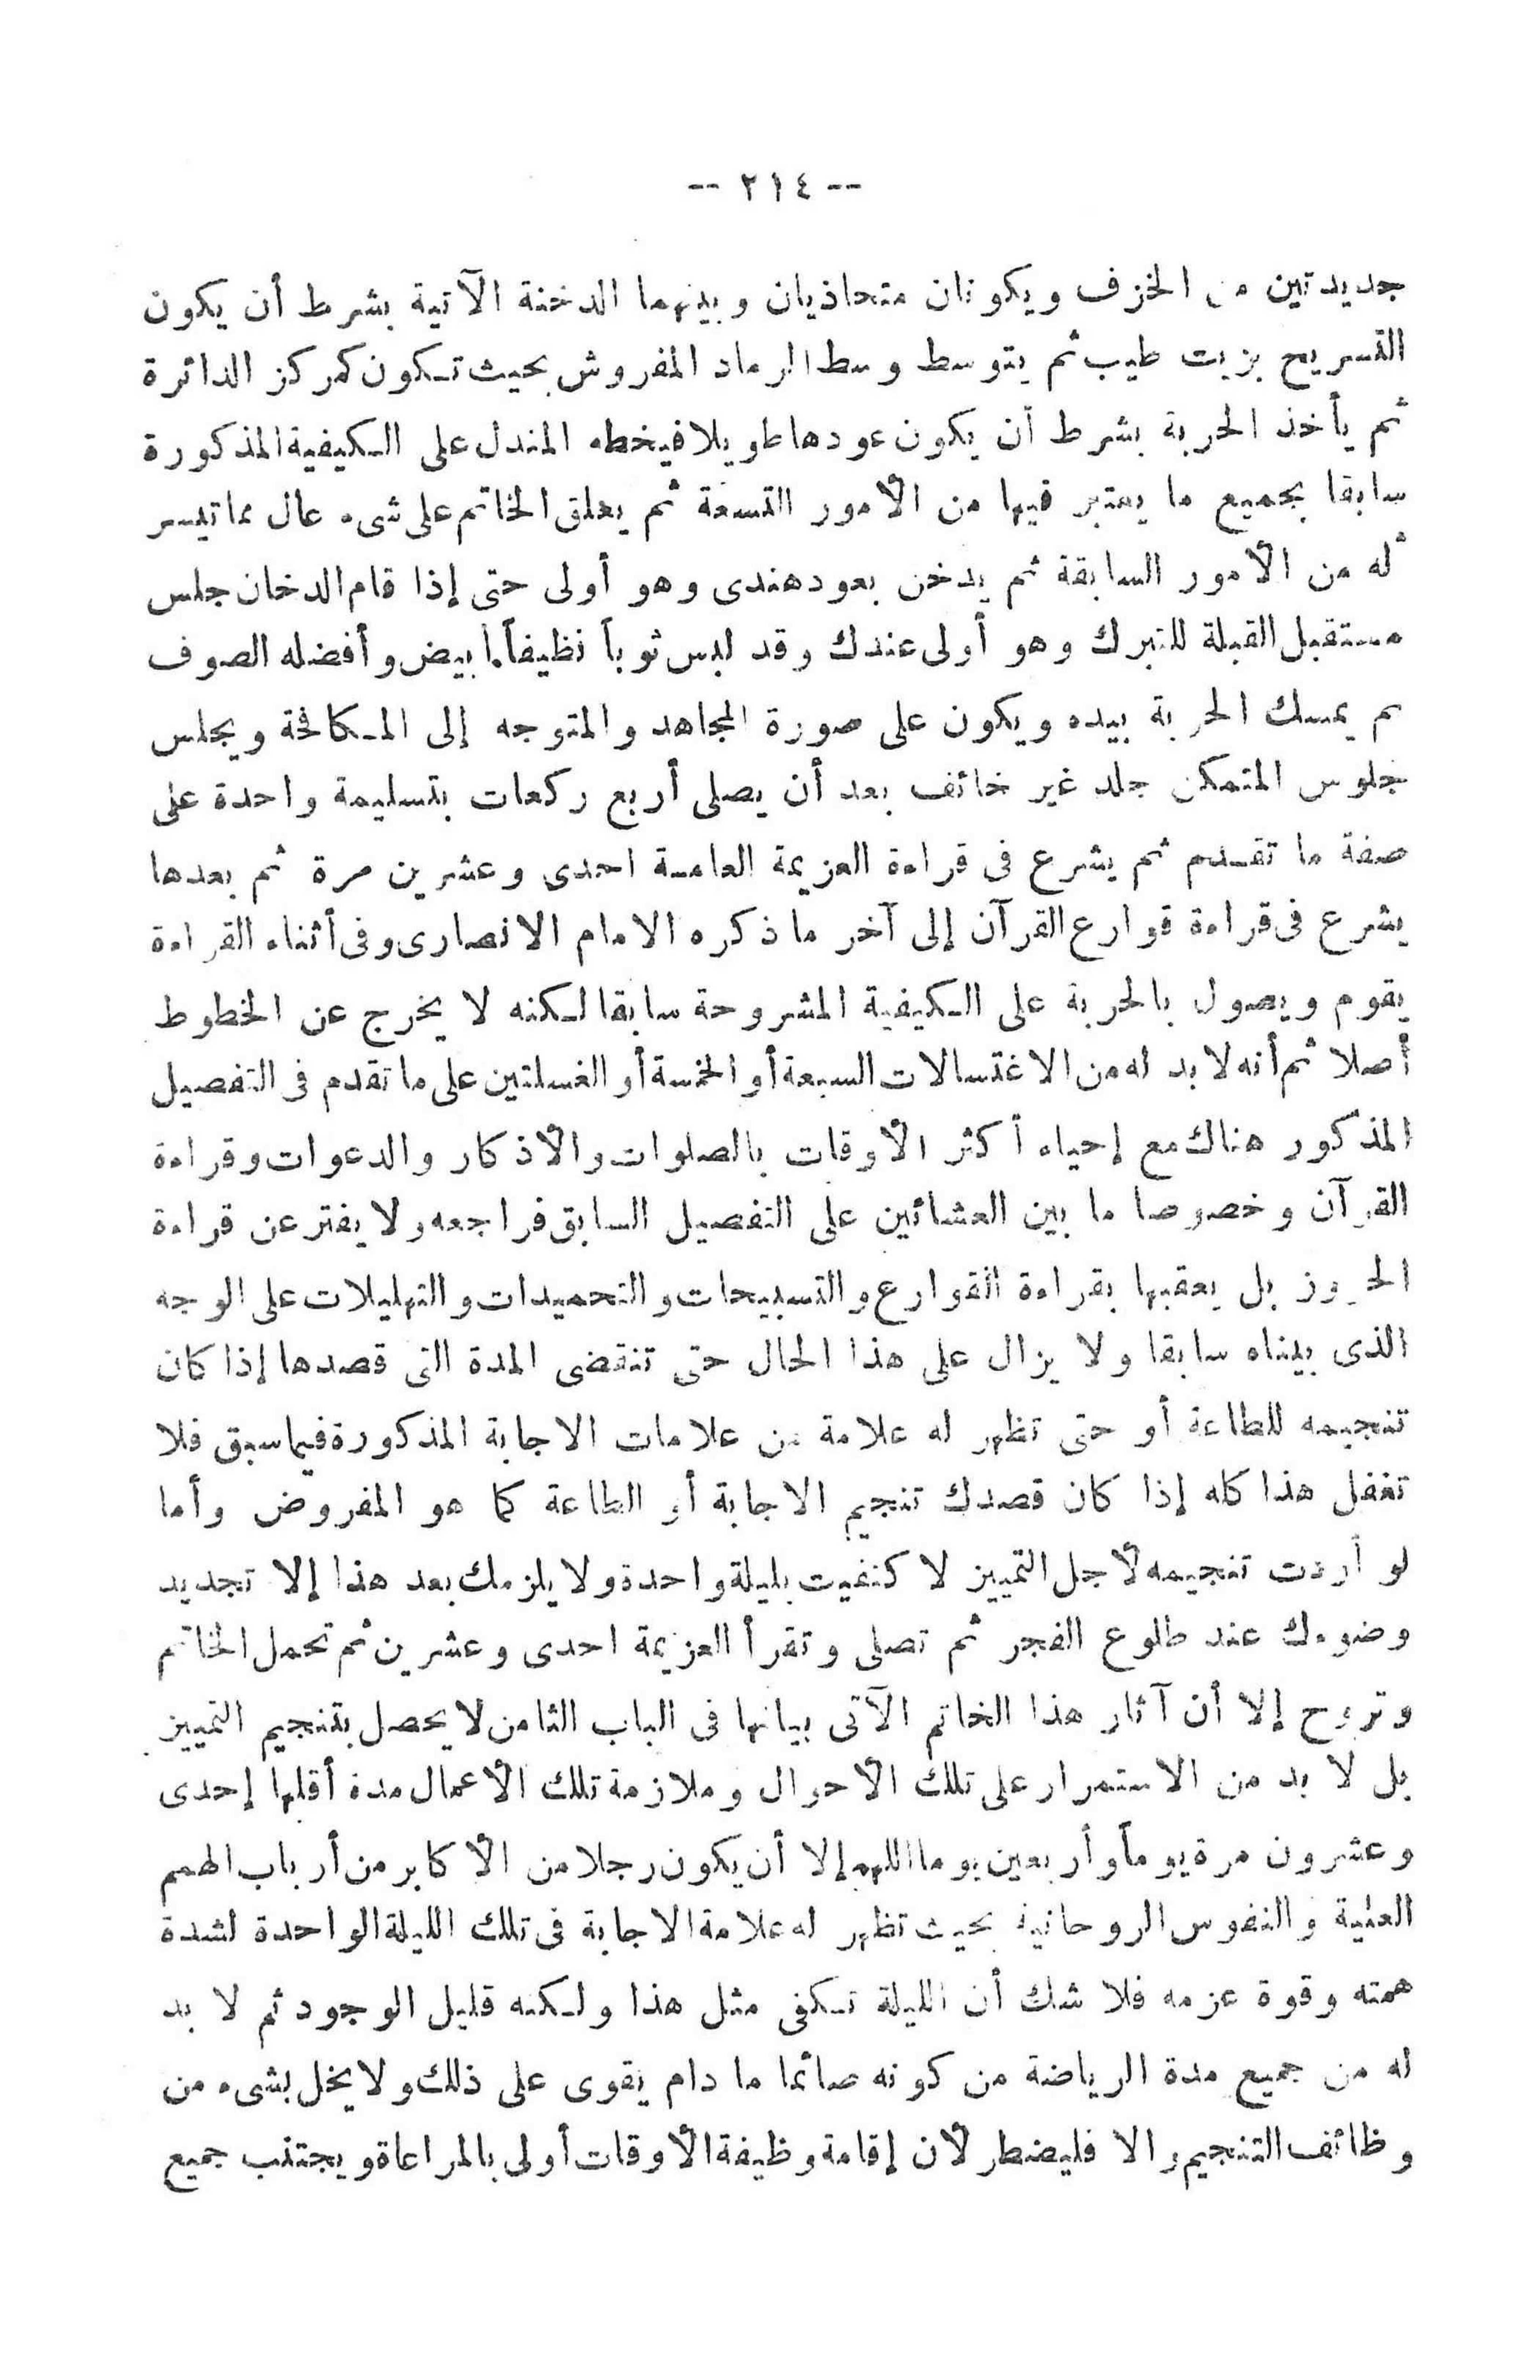 -- ٢١٤ --
جديدتين من الخزف ويكونان متحاذيان وبينهما الدخنة الآتية بشرط أن يكون
التسريج بزيت طيب ثم يتوسط وسط الرماد المفروش بحيث تكون كمركز الدائرة
ثم يأخذ الحربة بشرط أن يكون عودها طويلا فيخطه المندل على الكيفية المذكورة
سابقا بجميع ما يعتبر فيها من الأمور التسعة ثم يعلق الخاتم على شىء عال مما تيسر
له من الأمور السابقة ثم يدخن بعود هندى وهو أولى حتى إذا قام الدخان جلس
مستقبل القبلة للتبرك وهو أولى عندك وقد لبس ثوباً نظيفاً أبيض وأفضله الصوف
ثم يمسك الحربة بيده ويكون على صورة المجاهد والمتوجه إلى المكافحة ويجلس
جلوس المتمكن جلد غير خائف بعد أن يصلى أربع ركعات بتسليمة واحدة على
صفة ما تقدم ثم يشرع فى قراءة العزيمة العامة احدى وعشرين مرة ثم بعدها
يشرع فى قراءة قوارع القرآن إلى آخر ما ذكره الامام الانصارى وفى أثناء القراءة
يقوم ويصول بالحربة على الكيفية المشروحة سابقا لكنه لا يخرج عن الخطوط
أصلا ثم أنه لا بد له من الاغتسالات السبعة أو الخمسة أو الغسلتين على ما تقدم فى التفصيل
المذكور هناك مع إحياء أكثر الأوقات بالصلوات والأذكار والدعوات وقراءة
القرآن وخصوصا ما بين العشائين على التفصيل السابق فراجعه ولا يفتر عن قراءة
الحروز بل يعقبها بقراءة القوارع والتسبيحات والتحميدات والتهليلات على الوجه
الذى بيناه سابقا ولا يزال على هذا الحال حتى تنقضى المدة التى قصدها إذا كان
تنجيمه للطاعة أو حتى تظهر له علامة من علامات الاجابة المذكورة فيما سبق فلا
تغفل هذا كله إذا كان قصدك تنجيم الاجابة أو الطاعة كما هو المفروض وأما
لو أردت تنجيمه لأجل التمييز لاكتفيت بليلة واحدة ولا يلزمك بعد هذا إلا تجديد
وضوءك عند طلوع الفجر ثم تصلى وتقرأ العزيمة احدى وعشرين ثم تحمل الخاتم
وتروح إلا أن آثار هذا الخاتم الآتى بيانها فى الباب الثامن لا يحصل بتنجيم التمييز
بل لا بد من الاستمرار على تلك الأحوال وملازمة تلك الأعمال مدة أقلها إحدى
وعشرون مرة يوماً وأربعين يوما اللهم إلا أن يكون رجلا من الأكابر من أرباب الهمم
العلية والنفوس الروحانية بحيث تظهر له علامة الاجابة فى تلك الليلة الواحدة لشدة
همته وقوة عزمه فلا شك أن الليلة تكفى مثل هذا ولكنه قليل الوجود ثم لا بد
له من جميع مدة الرياضة من كونه صائما ما دام يقوى على ذلك ولا يخل بشىء من
وظائف التنجيم والا فليضطر لأن إقامة وظيفة الأوقات أولى بالمراعاة ويجتنب جميع